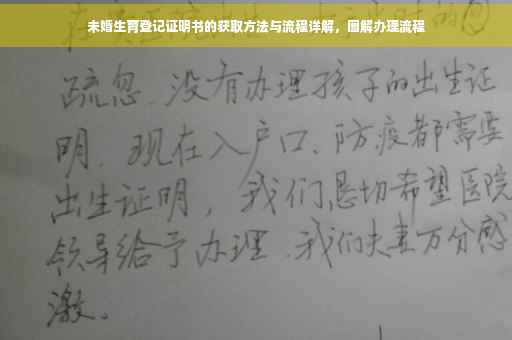 未婚生育登记证明书的获取方法与流程详解，图解办理流程
疏忽.没有办理孩子的出生证
明.现在入户口、防疫都需要
出生证明，我们恳切希望医院
领导给予办理.我们夫妻万分感
激。